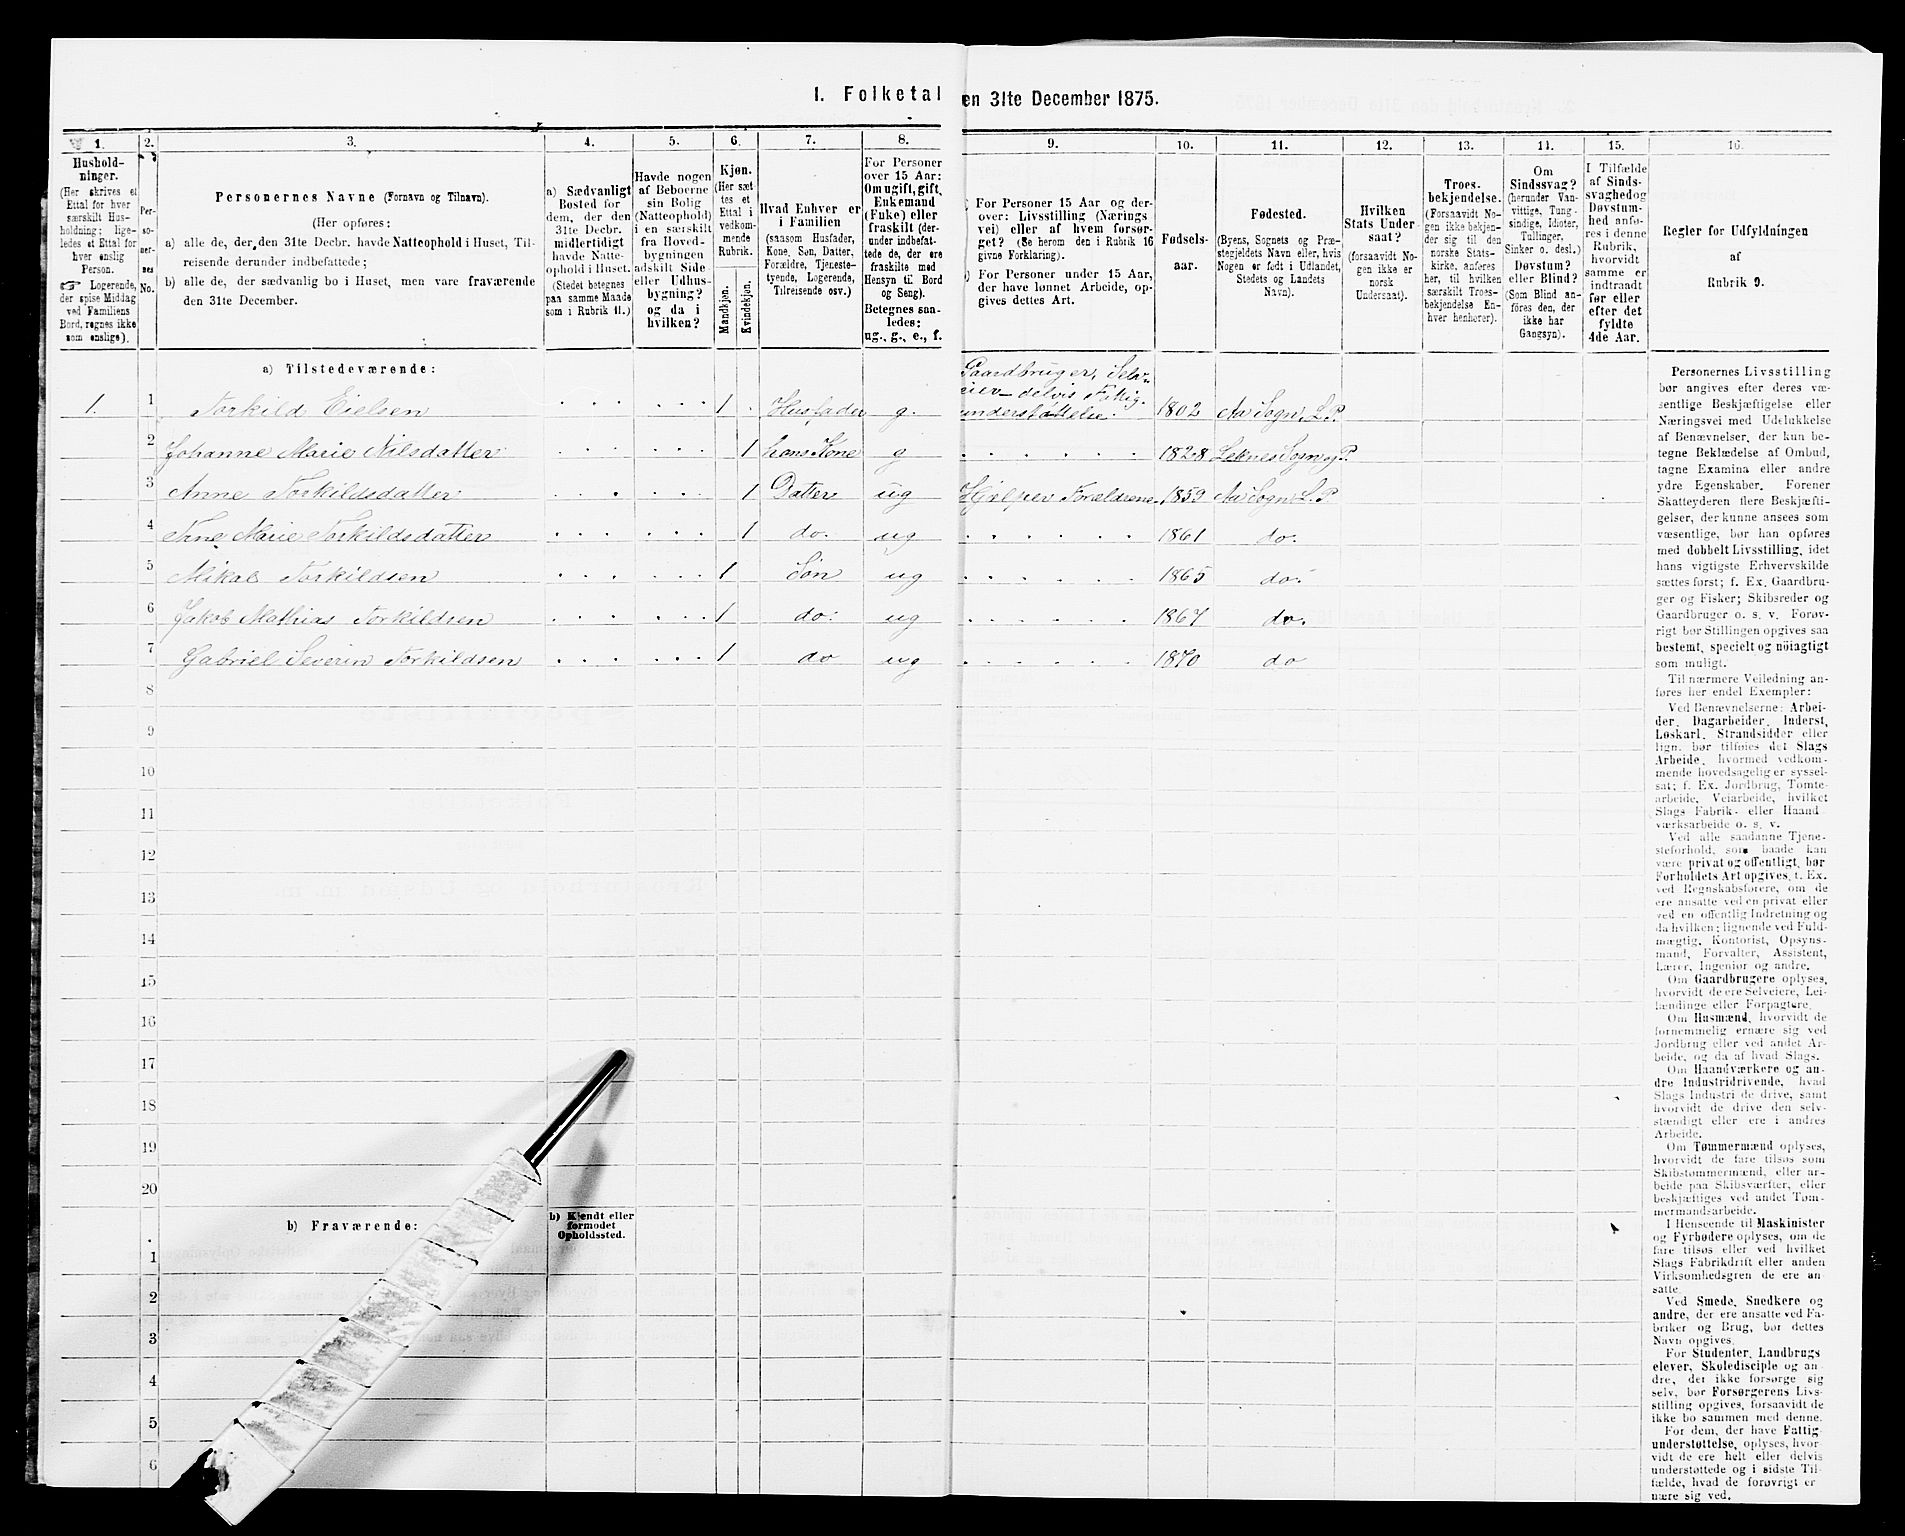 I. Folketal en 31te December 1875.
1.
Hushold-
ninger.
(Her skrives et
Ettal for hver
særskilt Hus-
holdning; lige-
ledes et Ettal for
hver enslig
Person.
☞ Logerende,
der spise Middag
ved Familiens
Bord, regnes ikke
som enslige).
2.
Per-
so-
ner-
nes
No.
3.
Personernes Navne (Fornavn og Tilnavn).
(Her opføres:
a) alle de, der den 31te Decbr. havde Natteophold i Huset, Til-
reisende derunder indbefattede;
b) alle de, der sædvanlig bo i Huset, men vare fraværende
den 31te December.
4.
a) Sædvanligt
Bosted for
dem, der den
31te Decbr.
midlertidigt
havde Natte-
ophold i Huset.
(Stedet betegnes
paa samme Maade
som i Rubrik 11.)
5.
Havde nogen
af Beboerne
sin Bolig
(Natteophold)
i en særskilt
fra Hoved-
bygningen
adskilt Side-
eller Udhus-
bygning?
og da i
hvilken?
6.
Kjøn.
(Her sæt
tes et
Ettal i
vedkom-
mende
Rubrik.
Mandkjøn.
Kvindekjøn.
7.
Hvad Enhver er
i Familien
(saasom Husfader,
Kone, Søn, Datter,
Forældre, Tjeneste-
tyende, Logerende,
Tilreisende osv.)
8.
For Personer
over 15 Aar:
Om ugift, gift,
Enkemand
(Enke) eller
fraskilt (der-
under indbefat-
tede de, der ere
fraskilte med
Hensyn til Bord
og Seng).
Betegnes saa-
ledes:
ug., g., e., f.
9.
For Personer 15 Aar og der-
over: Livsstilling (Nærings
vei) eller af hvem forsør-
get? (Se herom den i Rubrik 16
givne Forklaring).
) For Personer under 15 Aar,
der have lønnet Arbeide, op-
gives dettes Art.
10.
Fødsels-
aar.
11.
Fødested.
(Byens, Sognets og Præ-
stegjeldets Navn eller, hvis
Nogen er født i Udlandet,
Stedets og Landets
Navn).
12.
Hvilken
Stats Under-
saat?
(forsaavidt No-
gen ikke er
norsk
Undersaat).
13.
Troes-
bekjendelse.
(Forsaavidt No-
gen ikke bekjen-
der sig til den
norske Stats-
kirke, anføres
her, til hvilken
særskilt Troes-
bekjendelse En-
hver henhører).
14.
Om
Sindssvag?
(herunder Van-
vittige, Tung-
sindige, Idioter,
Tullinger,
Sinker o. desl.)
Døvstum?
eller Blind?
(Som Blind an-
føres den, der
ikke har
Gangsyn).
15.
I Tilfælde
af Sinds-
svaghed og
Døvstum-
hed anfø-
res i denne
Rubrik,
hvorvidt
samme er
indtraadt
før eller
efter det
fyldte
4de Aar.
16.
Regler for Udfyldningen
af
Rubrik 9.
a) Tilstedeværende:
1. 1 Torkild Eielsen 1 Husfader g. Gaardbruger, Selv-
eier - delvis Fattig-
understøttelse. 1802 Aa Sogn, L. P.
2 Johanne Marie Nilsdatter 1 hans Kone g 1828 Leknes Sogn og P.
3 Anne Torkildsdatter 1 Datter ug Hjelper Forældrene 1859 Aa Sogn L. P
4 Tine Marie Torkildsdatter 1 do. ug 1861 do.
5 Mikal Torkildsen 1 Søn ug 1865 do.
6 Jakob Mathias Torkildsen 1 do. ug 1867 do.
7 Gabriel Severin Torkildsen 1 do ug 1870 do
8
9
10
11
12
13
14
15
16
17
18
19
20
b) Fraværende:
b) Kjendt eller
formodet
Opholdssted.
1
2
3
4
5
6
Personernes Livsstilling
bør angives efter deres væ-
sentlige Beskjæftigelse eller
Næringsvei med Udelukkelse
af Benævnelser, der kun be-
tegne Beklædelse af Ombud,
tagne Examina eller andre
ydre Egenskaber. Forener
Skatteyderen flere Beskjæfti-
gelser, der kunne ansees som
væsentlige, bør han opføres
med dobbelt Livsstilling, idet
hans vigtigste Erhvervskilde
sættes først; f. Ex. Gaardbru-
ger og Fisker; Skibsreder og
Gaardbruger o. s. v. Forøv-
rigt bør Stillingen opgives saa
bestemt, specielt og nöiagtigt
som muligt.
Til nærmere Veiledning an-
føres her endel Exempler:
Ved Benævnelserne: Arbei-
der, Dagarbeider, Inderst,
Løskarl, Strandsidder eller
lign. bør tilføies det Slags
Arbeide, hvormed vedkom-
mende hovedsagelig er syssel-
sat; f. Ex. Jordbrug, Tomte-
arbeide, Veiarbeide, hvilket
Slags Fabrik- eller Haand
værksarbeide o. s. v.
Ved alle saadanne Tjene-
steforhold, som baade kan
være privat og offentligt, bør
Forholdets Art opgives, f. Ex.
ved Regnskabsførere, om de
ere ansatte ved en privat eller
ved en offentlig Indretning og
da hvilken; lignende ved Fuld-
mægtig, Kontorist, Opsyns-
mand, Forvalter, Assistent,
Lærer, Ingeniør og andre.
Om Gaardbrugere oplyses,
hvorvidt de ere Selveiere, Lei-
lændinge eller Forpagtere.
Om Husmænd, hvorvidt de
fornemmelig ernære sig ved
Jordbrug eller ved andet Ar-
beide, og da af hvad Slags.
Om Haandværkere og an-
dre Industridrivende, hvad
Slags Industri de drive, samt
hvorvidt de drive den selv-
stændigt eller ere i andres
Arbeide.
Om Tømmermænd oplyses,
hvorvidt de fare tilsøs som
Skibstømmermænd, eller ar-
beide paa Skibsværfter, eller
beskjæftiges ved andet Tøm-
mermandsarbeide.
I Henseende til Maskinister
og Fyrbødere oplyses, om de
fare tilsøs eller ved hvilket
Slags Fabrikdrift eller anden
Virksomhedsgren de ere an-
satte.
Ved Smede, Snedkere og
andre, der ere ansatte ved Fa-
briker og Brug, bør dettes
Navn opgives.
For Studenter, Landbrugs
elever, Skoledisciple og an-
dre, der ikke forsørge sig
selv, bør Forsørgerens Livs-
stilling opgives, forsaavidt de
ikke bo sammen med denne.
For dem, der have Fattig
understøttelse, oplyses, hvor-
vidt de ere helt eller delvis
understøttede og i sidste Til-
fælde, hvad de forøvrigt er
nære sig ved.